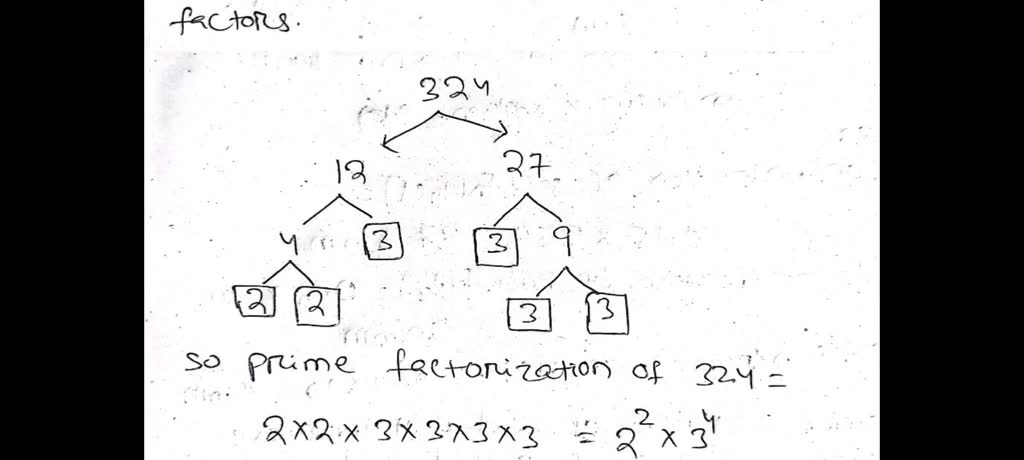 factors.
324
12 27
4 3 3 9
2 2 3 3
so prime factorization of 324 =
2×2× 3×3×3×3 = 2² × 3⁴